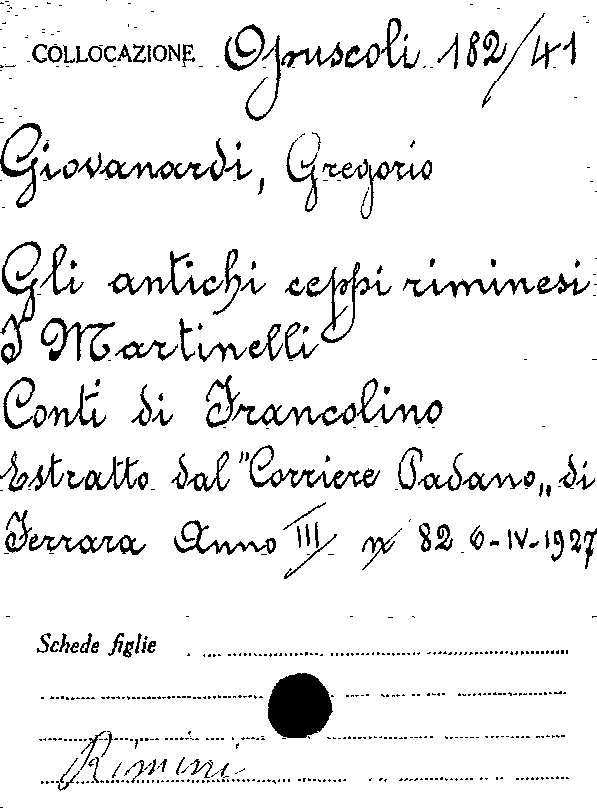 COLLOCAZIONE Opuscoli 182/41
Giovanardi, Gregorio
Gli antichi ceppi riminesi
I Martinelli
Conti di Francolino
Estratto dal "Corriere Padano„ di
Ferrara Anno III/ n 82 6-IV-1927
Schede figlie
Rimini